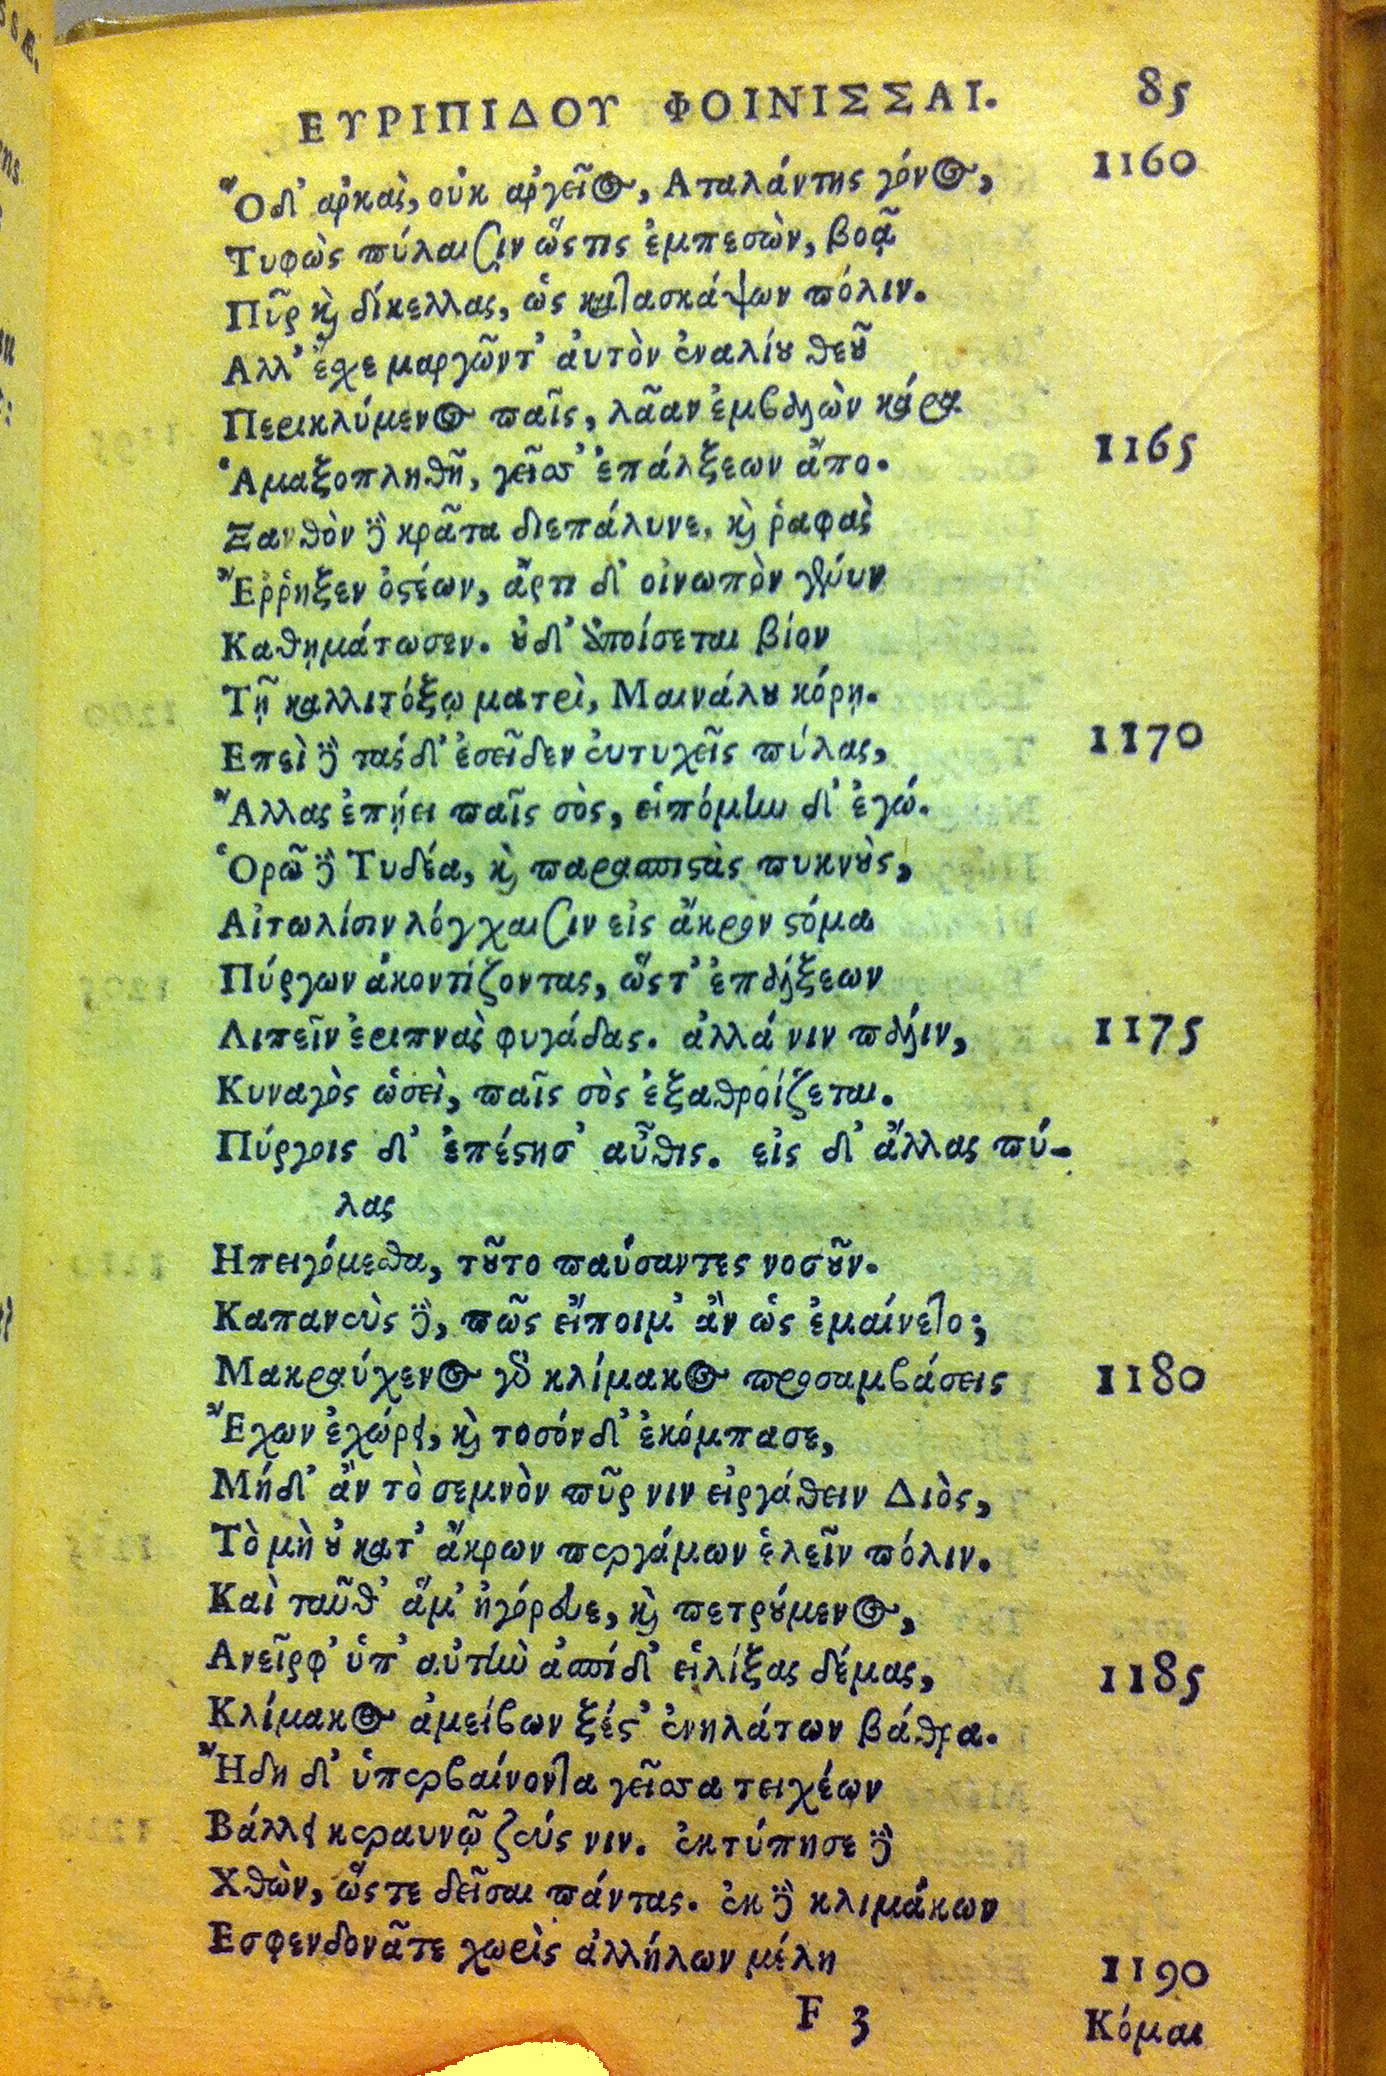 ΕΥΡΙΠΙΔΟΥ ΦΟΙΝΙΣΣΑΙ. 85
Ὅδ' ἀρκὰς, οὐκ ἀργεῖος, Αταλάντης γόνος, 1160
Τυφὼς πύλαισιν ὥς τις ἐμπεσὼν, βοᾷ
Πῦρ καὶ δίκελλας, ὡς κατασκάψων πόλιν.
Αλλ' ἔσχε μαργῶντ' ἀυτὸν ἐναλίου θεοῦ
Περικλύμενος παῖς, λᾶαν ἐμβαλὼν κάρᾳ
Ἁμαξοπληθῆ, γεῖσσ' ἐπάλξεων ἄπο. 1165
Ξανθὸν δὲ κρᾶτα διεπάλυνε, καὶ ῥαφὰς
Ἔῤῥηξεν ὀστέων, ἄρτι δ' οἰνωπὸν γένυν
Καθημάτωσεν. οὐδ' ἀποίσεται βίον
Τῇ καλλιτόξῳ ματρὶ, Μαινάλου κόρῃ.
Επεὶ δὲ τάσδ' ἐσεῖδεν εὐτυχεῖς πύλας, 1170
Ἄλλας ἐπῄει παῖς σὸς, εἱπόμην δ' ἐγώ.
Ὁρῶ δὲ Τυδέα, καὶ παρασπιστὰς πυκνοὺς,
Αἰτωλίσιν λόγχαισιν εἰς ἄκρον στόμα
Πύργων ἀκοντίζοντας, ὥστ' ἐπάλξεων
Λιπεῖν ἐριπνὰς φυγάδας. ἀλλά νιν πάλιν, 1175
Κυναγὸς ὡσεὶ, παῖς σὸς ἐξαθροίζεται.
Πύργοις δ' ἐπέστησ' αὖθις. εἰς δ' ἄλλας πύ-
λας
Ηπειγόμεσθα, τοῦτο παύσαντες νοσοῦν.
Καπανεὺς δὲ, πῶς εἴποιμ' ἂν ὡς ἐμαίνετο;
Μακραύχενος γὰρ κλίμακος προσαμβάσεις 1180
Ἔχων ἐχώρει, καὶ τοσόνδ' ἐκόμπασε,
Μήδ' ἂν τὸ σεμνὸν πῦρ νιν εἰργάθειν Διὸς,
Τὸ μὴ οὐ κατ' ἄκρων περγάμων ἑλεῖν πόλιν.
Καὶ ταῦθ' ἅμ' ἠγόρευε, καὶ πετρούμενος,
Ανεῖρφ' ὑπ' αὐτὴν ἀσπίδ' εἱλίξας δέμας, 1185
Κλίμακος ἀμείβων ξέστ' ἐνηλάτων βάθρα.
Ἤδη δ' ὑπερβαίνοντα γεῖσσα τειχέων
Βάλλει κεραυνῷ ζεύς νιν. ἐκτύπησε δὲ
Χθὼν, ὥστε δεῖσαι πάντας. ἐκ δὲ κλιμάκων
Εσφενδονᾶτε χωρὶς ἀλλήλων μέλη 1190
F 3 Κόμαι